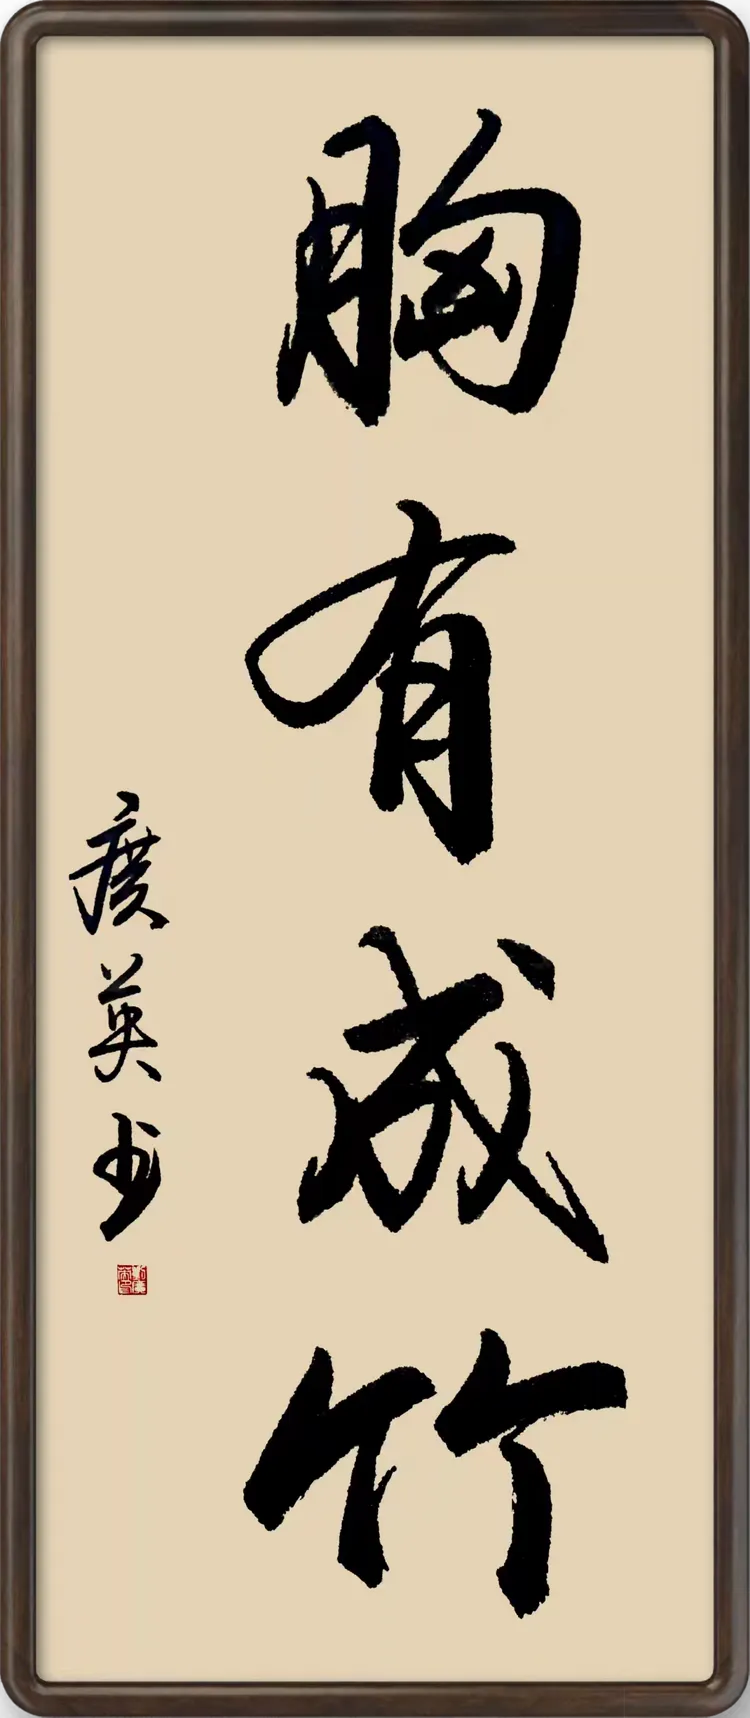 胸有成竹
广英书